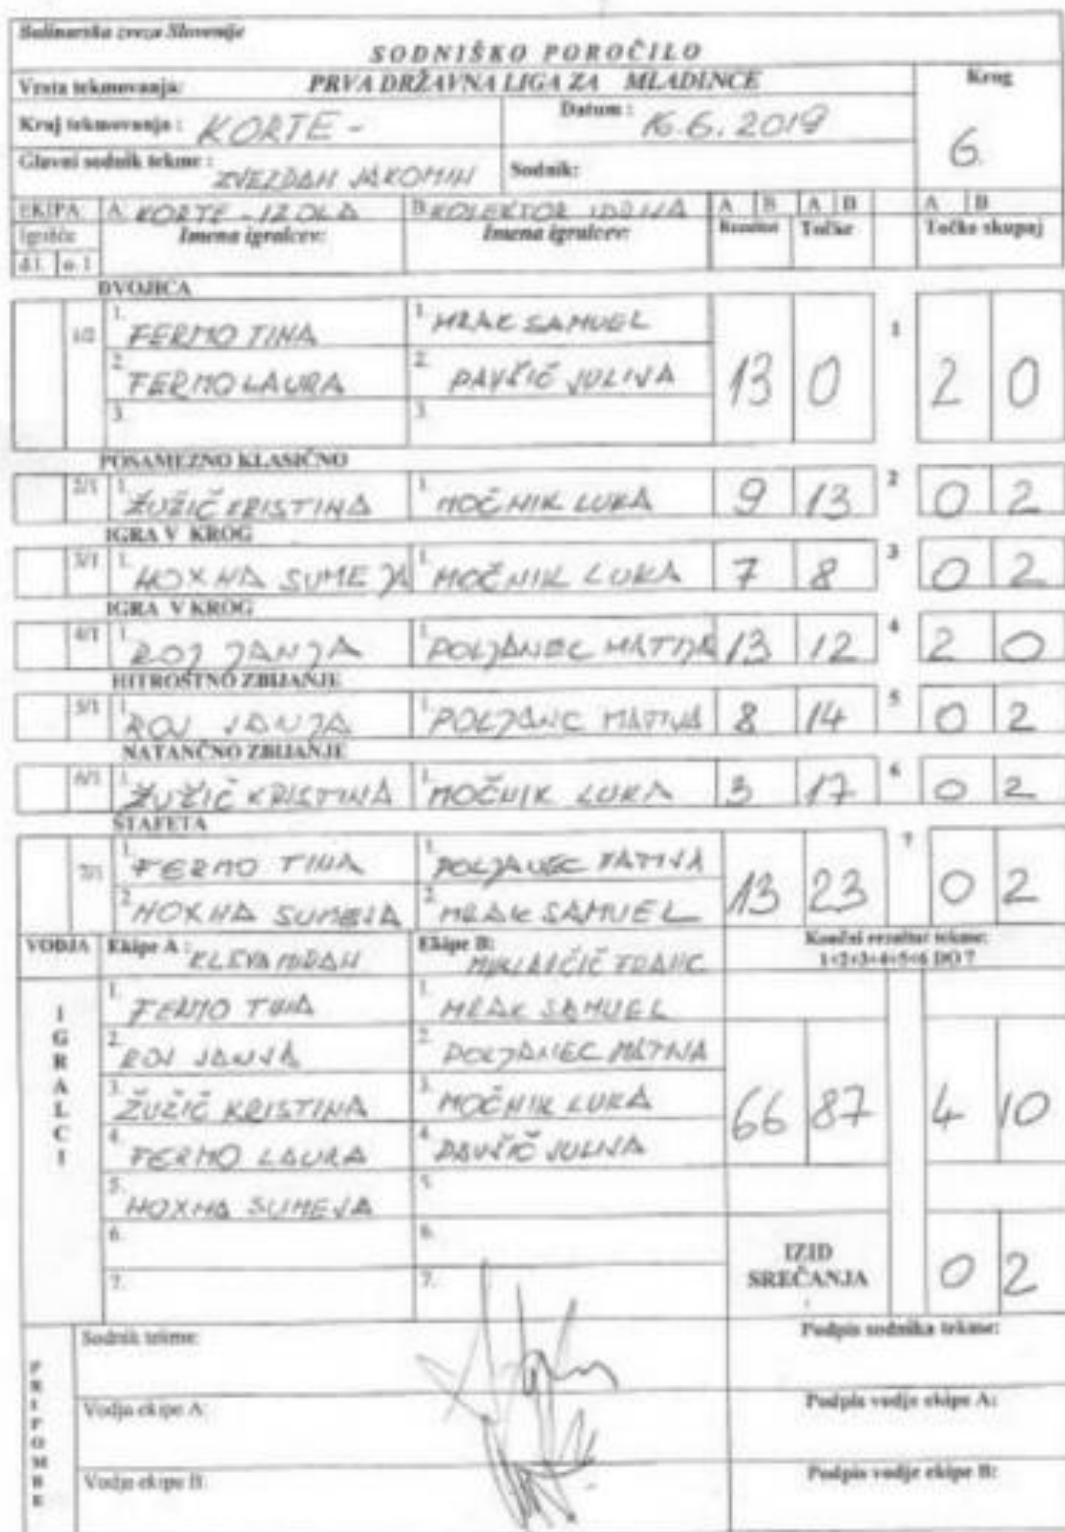 Balinarska zveza Slovenije
SODNIŠKO POROČILO
Vrsta tekmovanja: PRVA DRŽAVNA LIGA ZA MLADINCE Krog
Kraj tekmovanja : KORTE - Datum : 16.6.2019 6.
Glavni sodnik tekme : ZVEZDAN JAKOMIN Sodnik:
EKIPA A. KORTE - IZOLA B. KOLEKTOR IDRIJA A B A B A B
Igrišče Imena igralcev: Imena igralcev: Rezultat Točke Točke skupaj
d.l. o.l
DVOJICA
1/2 1. FERMO TINA 1. MRAK SAMUEL 13 0 1 2 0
2. FERMO LAURA 2. PAVŠIČ JULIJA
3. 3.
POSAMEZNO KLASIČNO
2/1 1. ŽUŽIČ KRISTINA 1. MOČNIK LUKA 9 13 2 0 2
IGRA V KROG
3/1 1. HOXHA SUMEJA 1. MOČNIK LUKA 7 8 3 0 2
IGRA V KROG
4/1 1. ROJ JANJA 1. POLJANEC MATIJA 13 12 4 2 0
HITROSTNO ZBIJANJE
5/1 1. ROJ JANJA 1. POLJANC MATIJA 8 14 5 0 2
NATANČNO ZBIJANJE
6/1 1. ŽUŽIČ KRISTINA 1. MOČNIK LUKA 3 17 6 0 2
ŠTAFETA
7/1 1. FERMO TINA 1. POLJANEC MATIJA 13 23 7 0 2
2. HOXHA SUMEJA 2. MRAK SAMUEL
VODJA Ekipe A : KLEVA MIRAN Ekipe B: Končni rezultat tekme:
1+2+3+4+5+6 DO 7
IGRALCI
1. FERMO TINA 1. MRAK SAMUEL
2. ROJ JANJA 2. POLJANEC MATIJA
3. ŽUŽIČ KRISTINA 3. MOČNIK LUKA 66 87 4 10
4. FERMO LAURA 4. PAVŠIČ JULIJA
5. HOXHA SUMEJA 5.
6. 6. IZID
7. 7. SREČANJA 0 2
PRIPOMBE
Sodnik tekme: Podpis sodnika tekme:
Vodja ekipe A: Podpis vodje ekipe A:
Vodja ekipe B: Podpis vodje ekipe B: